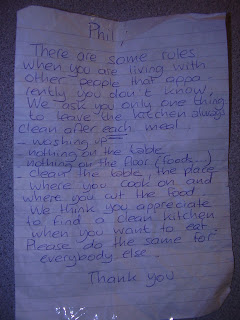 Phil,
There are some rules
when you are living with
other people that appa-
rently you don't know,
We ask you only one thing
to leave the kitchen always
clean after each meal
- washing up
- nothing on the table
- nothing on the floor (foods,...)
- clean the table, the place
where you cook on and
where you cut the food
We think you appreciate
to find a clean kitchen
when you want to eat.
Please do the same for
everybody else.
Thank you